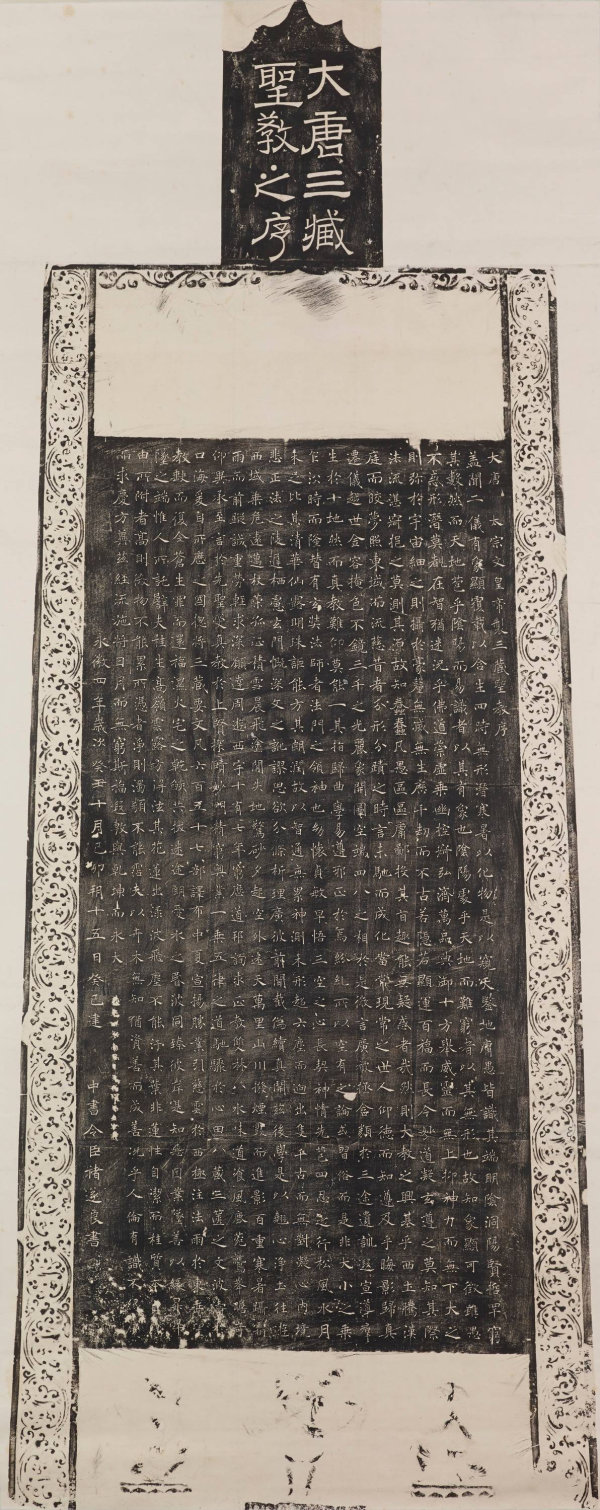 大唐三藏
聖教之序
大唐太宗文皇帝製三藏聖教序
蓋聞二儀有象顯覆載以含生四時無形潛寒暑以化物是以窺天鑒地庸愚皆識其端明陰洞陽賢哲罕窮
其數然而天地苞乎陰陽而易識者以其有象也陰陽處乎天地而難窮者以其無形也故知象顯可徵雖愚
不惑形潛莫覩在智猶迷況乎佛道崇虛乘幽控寂弘濟萬品典御十方舉威靈而無上抑神力而無下大之
則彌於宇宙細之則攝於豪氂無滅無生歷千劫而不古若隱若顯運百福而長今妙道凝玄遵之莫知其際
法流湛寂挹之莫測其源故知蠢蠢凡愚區區庸鄙投其旨趣能無疑惑者哉然則大教之興基乎西土騰漢
庭而皎夢照東域而流慈昔者分形分蹟之時言未馳而成化當常現常之世人仰德而知遵及乎晦影歸真
遷儀越世金容掩色不鏡三千之光麗象開圖空端四八之相於是微言廣被拯含類於三途遺訓遐宣導群
生於十地然而真教難仰莫能一其指歸曲學易遵邪正於焉紛糺所以空有之論或習俗而是非大小之乘
乍沿時而隆替有玄奘法師者法門之領袖也幼懷貞敏早悟三空之心長契神情先苞四忍之行松風水月
未足比其清華仙露明珠詎能方其朗潤故以智通無累神測未形超六塵而迥出隻千古而無對凝心內境
悲正法之陵遲栖慮玄門慨深文之訛謬思欲分條析理廣彼前聞截偽續真開茲後學是以翹心淨土往遊
西域乘危遠邁杖策孤征積雪晨飛塗間失地驚砂夕起空外迷天萬里山川撥煙霞而進影百重寒暑躡霜
雨而前蹤誠重勞輕求深願達周遊西宇十有七年窮歷道邦詢求正教雙林八水味道飡風鹿苑鷲峯瞻奇
仰異承至言於先聖受真教於上賢探賾妙門精窮奧業一乘五律之道馳驟於心田八藏三篋之文波濤於
口海爰自所歷之國總將三藏要文凡六百五十七部譯布中夏宣揚勝業引慈雲於西極注法雨於東垂聖
教缺而復全蒼生罪而還福濕火宅之乾焰共拔迷途朗愛水之昏波同臻彼岸是知惡因業墜善以緣昇昇
墜之端惟人所託譬夫桂生高嶺雲露方得泫其花蓮出淥波飛塵不能污其葉非蓮性自潔而桂質本貞良
由所附者高則微物不能累所憑者淨則濁類不能霑夫以卉木無知猶資善而成善況乎人倫有識不緣慶
而求慶方冀茲經流施將日月而無窮斯福遐敷與乾坤而永大
永徽四年歲次癸丑十月己卯朔十五日癸巳建 中書令臣褚遂良書